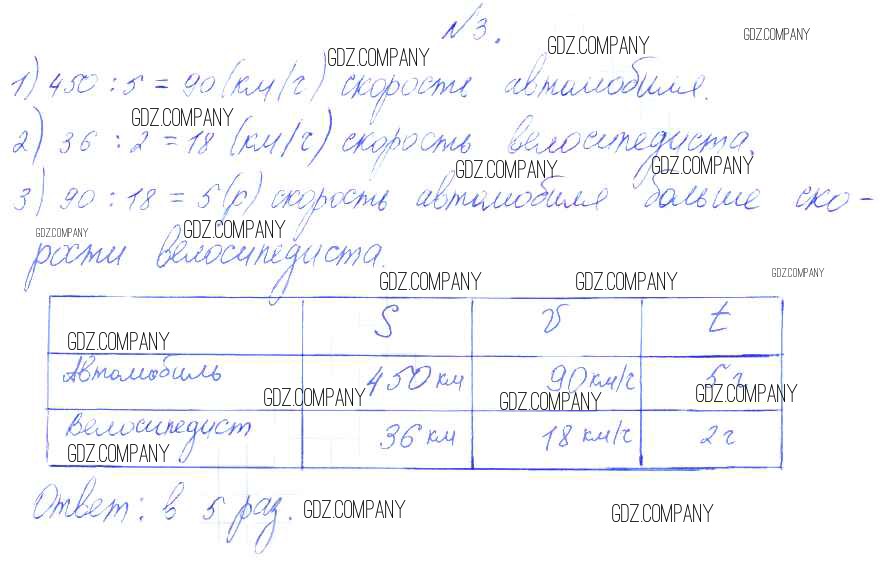 №3.
GDZ.COMPANY GDZ.COMPANY GDZ.COMPANY
1) 450 : 5 = 90 (км/ч) скорость автомобиля.
GDZ.COMPANY
2) 36 : 2 = 18 (км/ч) скорость велосипедиста.
GDZ.COMPANY GDZ.COMPANY
3) 90 : 18 = 5 (р) скорость автомобиля больше ско-
GDZ.COMPANY GDZ.COMPANY
рости велосипедиста.
GDZ.COMPANY GDZ.COMPANY GDZ.COMPANY
S v t
GDZ.COMPANY
Автомобиль 450 км 90 км/ч 5 ч
GDZ.COMPANY GDZ.COMPANY GDZ.COMPANY
Велосипедист 36 км 18 км/ч 2 ч
GDZ.COMPANY
Ответ: в 5 раз.
GDZ.COMPANY GDZ.COMPANY